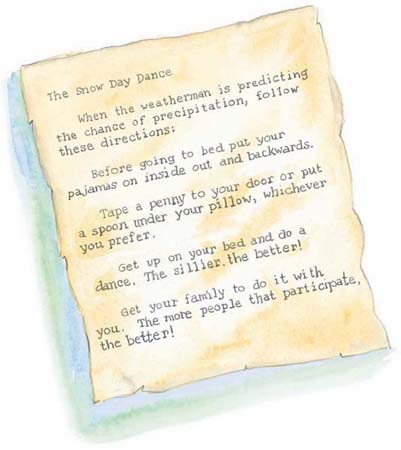 The Snow Day Dance
When the weatherman is predicting
the chance of precipitation, follow
these directions:
Before going to bed put your
pajamas on inside out and backwards.
Tape a penny to your door or put
a spoon under your pillow, whichever
you prefer.
Get up on your bed and do a
dance. The sillier the better!
Get your family to do it with
you. The more people that participate,
the better!